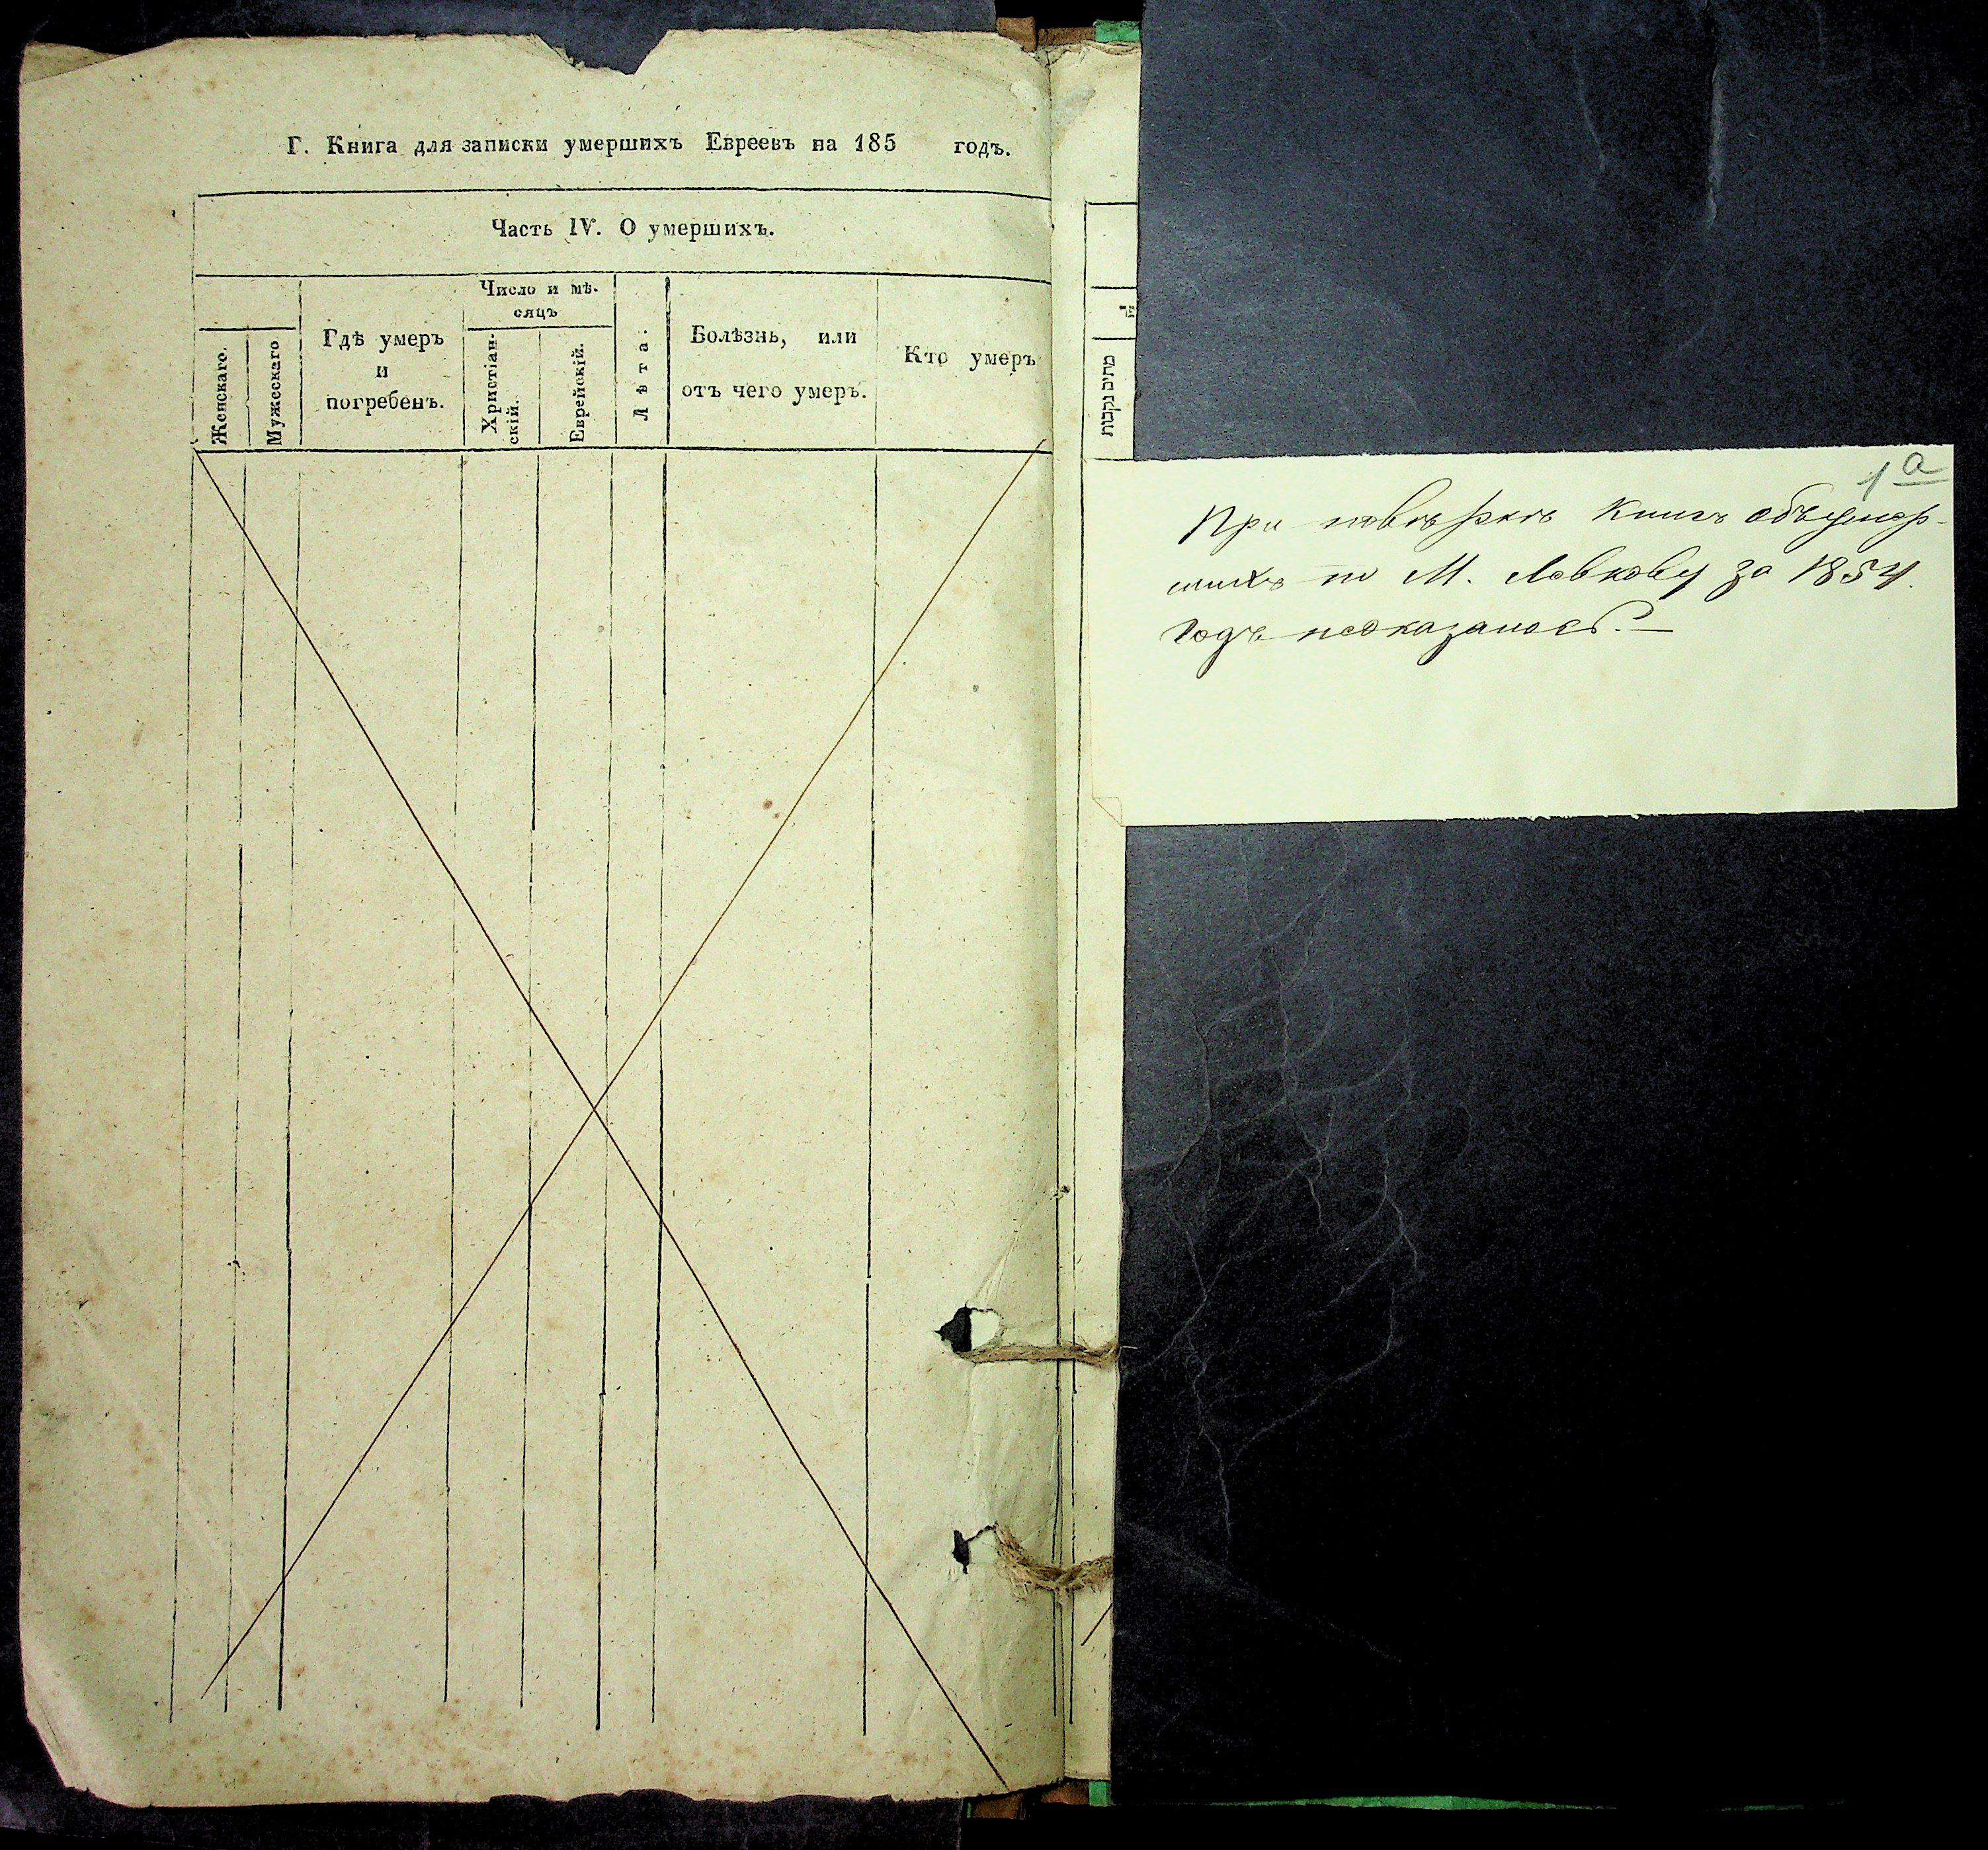 Г. Книга для записки умершихъ Евреевъ на 185 годъ.
Часть IV. О умершихъ.
Женскаго.
Мужескаго
Гдѣ умеръ
и
погребенъ.
Число и мѣ-
сяцъ
Христіан-
скій.
Еврейскій.
Лѣта.
Болѣзнь, или
отъ чего умеръ.
Кто умеръ
מתים נקבות
1а
При повѣркѣ книгъ объ умер-
шихъ по М. Ловкову за 1854.
годъ неоказалось.—